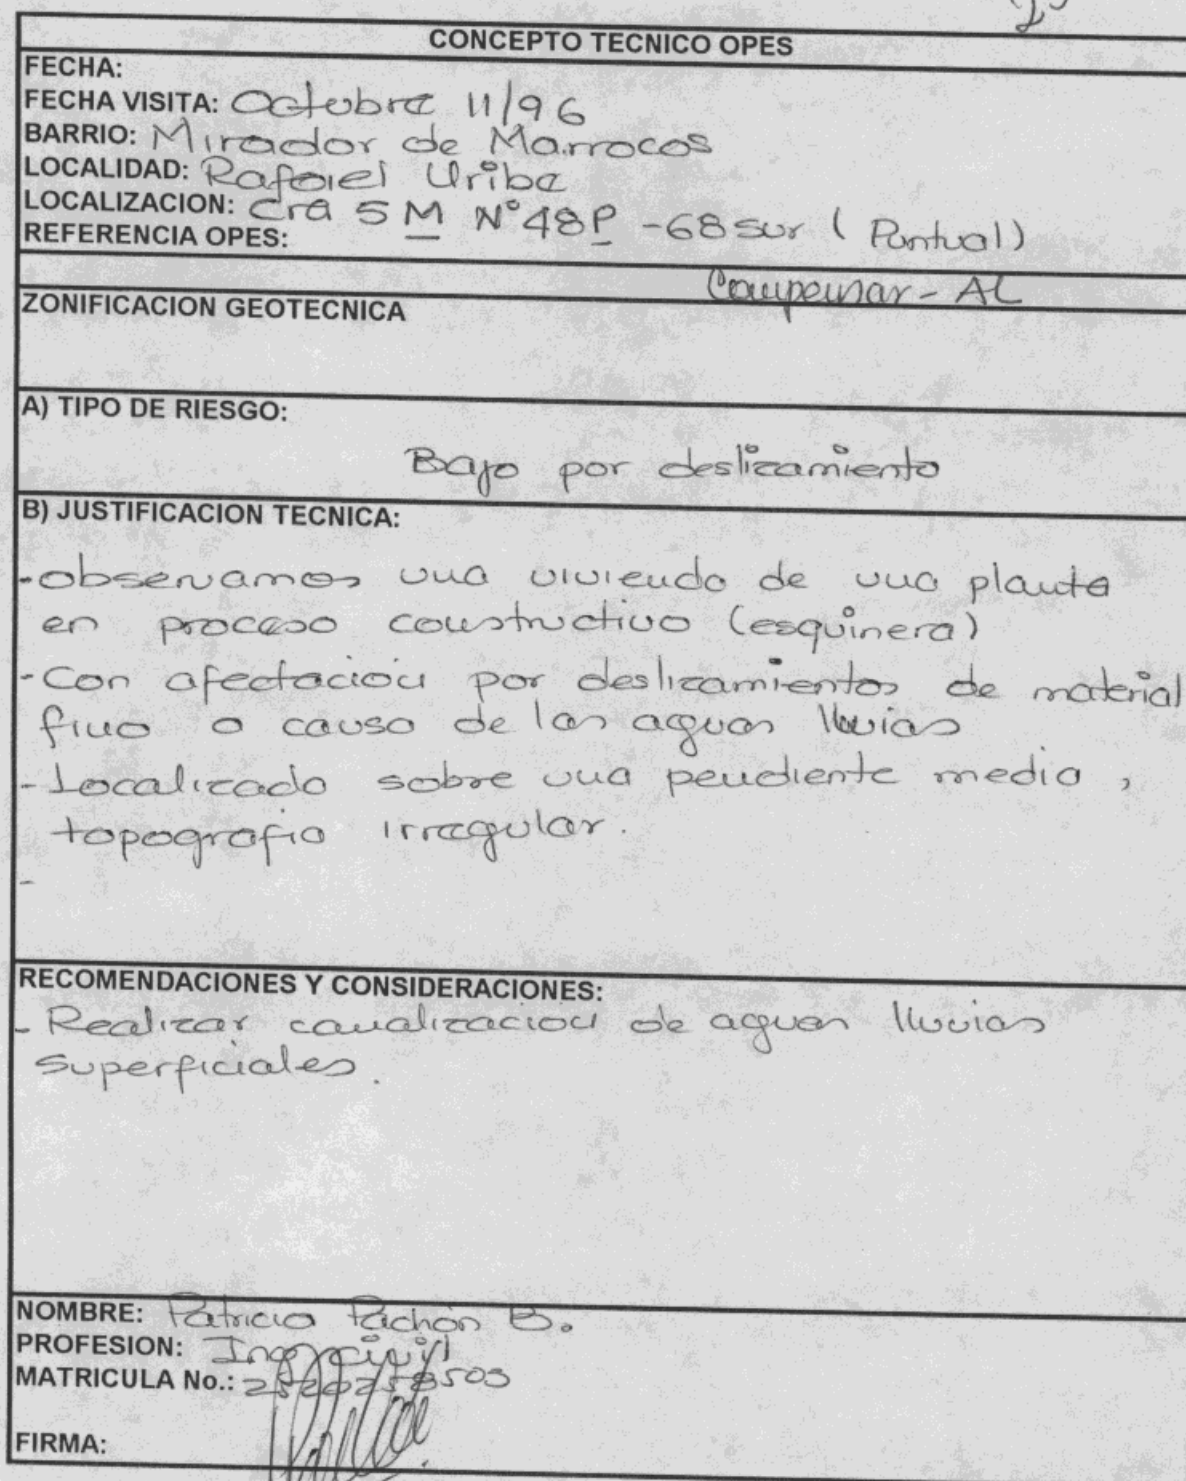 CONCEPTO TECNICO OPES
FECHA:
FECHA VISITA: Octubre 11/96
BARRIO: Mirador de Marrocos
LOCALIDAD: Rafael Uribe
LOCALIZACION: Cra 5 M N°48P -68 sur ( Puntual)
REFERENCIA OPES:
ZONIFICACION GEOTECNICA
A) TIPO DE RIESGO:
Bajo por deslizamiento
B) JUSTIFICACION TECNICA:
-observamos una vivienda de una planta
en proceso constructivo (esquinera)
-Con afectación por deslizamientos de material
fino a causa de las aguas lluvias
-Localizada sobre una pendiente media ,
topografia irregular.
-
RECOMENDACIONES Y CONSIDERACIONES:
- Realizar canalización de aguas lluvias
superficiales.
NOMBRE: Patricia Pachón B.
PROFESION: Ing civil
MATRICULA No.:
FIRMA: